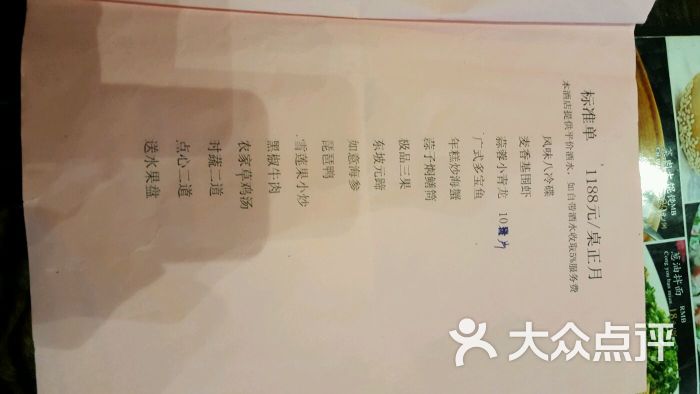 标准单 1188元/桌正月
本酒店提供平价酒水，如自带酒水收取5%服务费
风味八冷碟
麦香基围虾
蒜蓉小青龙 10
广式多宝鱼
年糕炒海蟹
蒜子焖鳝筒
极品三果
东坡元蹄
如意海参
琵琶鸭
雪莲果小炒
黑椒牛肉
农家草鸡汤
时蔬二道
点心二道
送水果盘
葱油拌面 RMB
大众点评